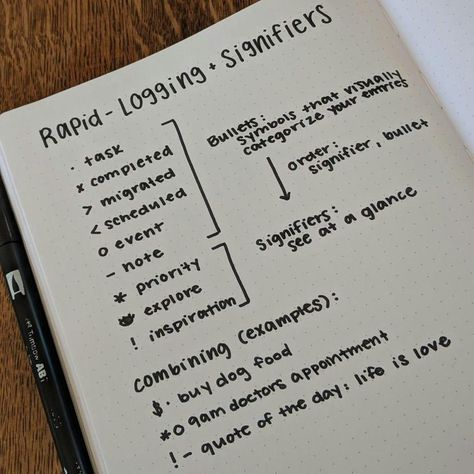 Rapid-Logging + Signifiers
· task
x completed
> migrated
< scheduled
o event
- note
* priority
explore
! inspiration
Bullets:
symbols that visually
categorize your entries
order:
signifier, bullet
Signifiers:
see at a glance
combining (examples):
$· buy dog food
*o 9am doctors appointment
!- quote of the day: life is love
Tombow AB